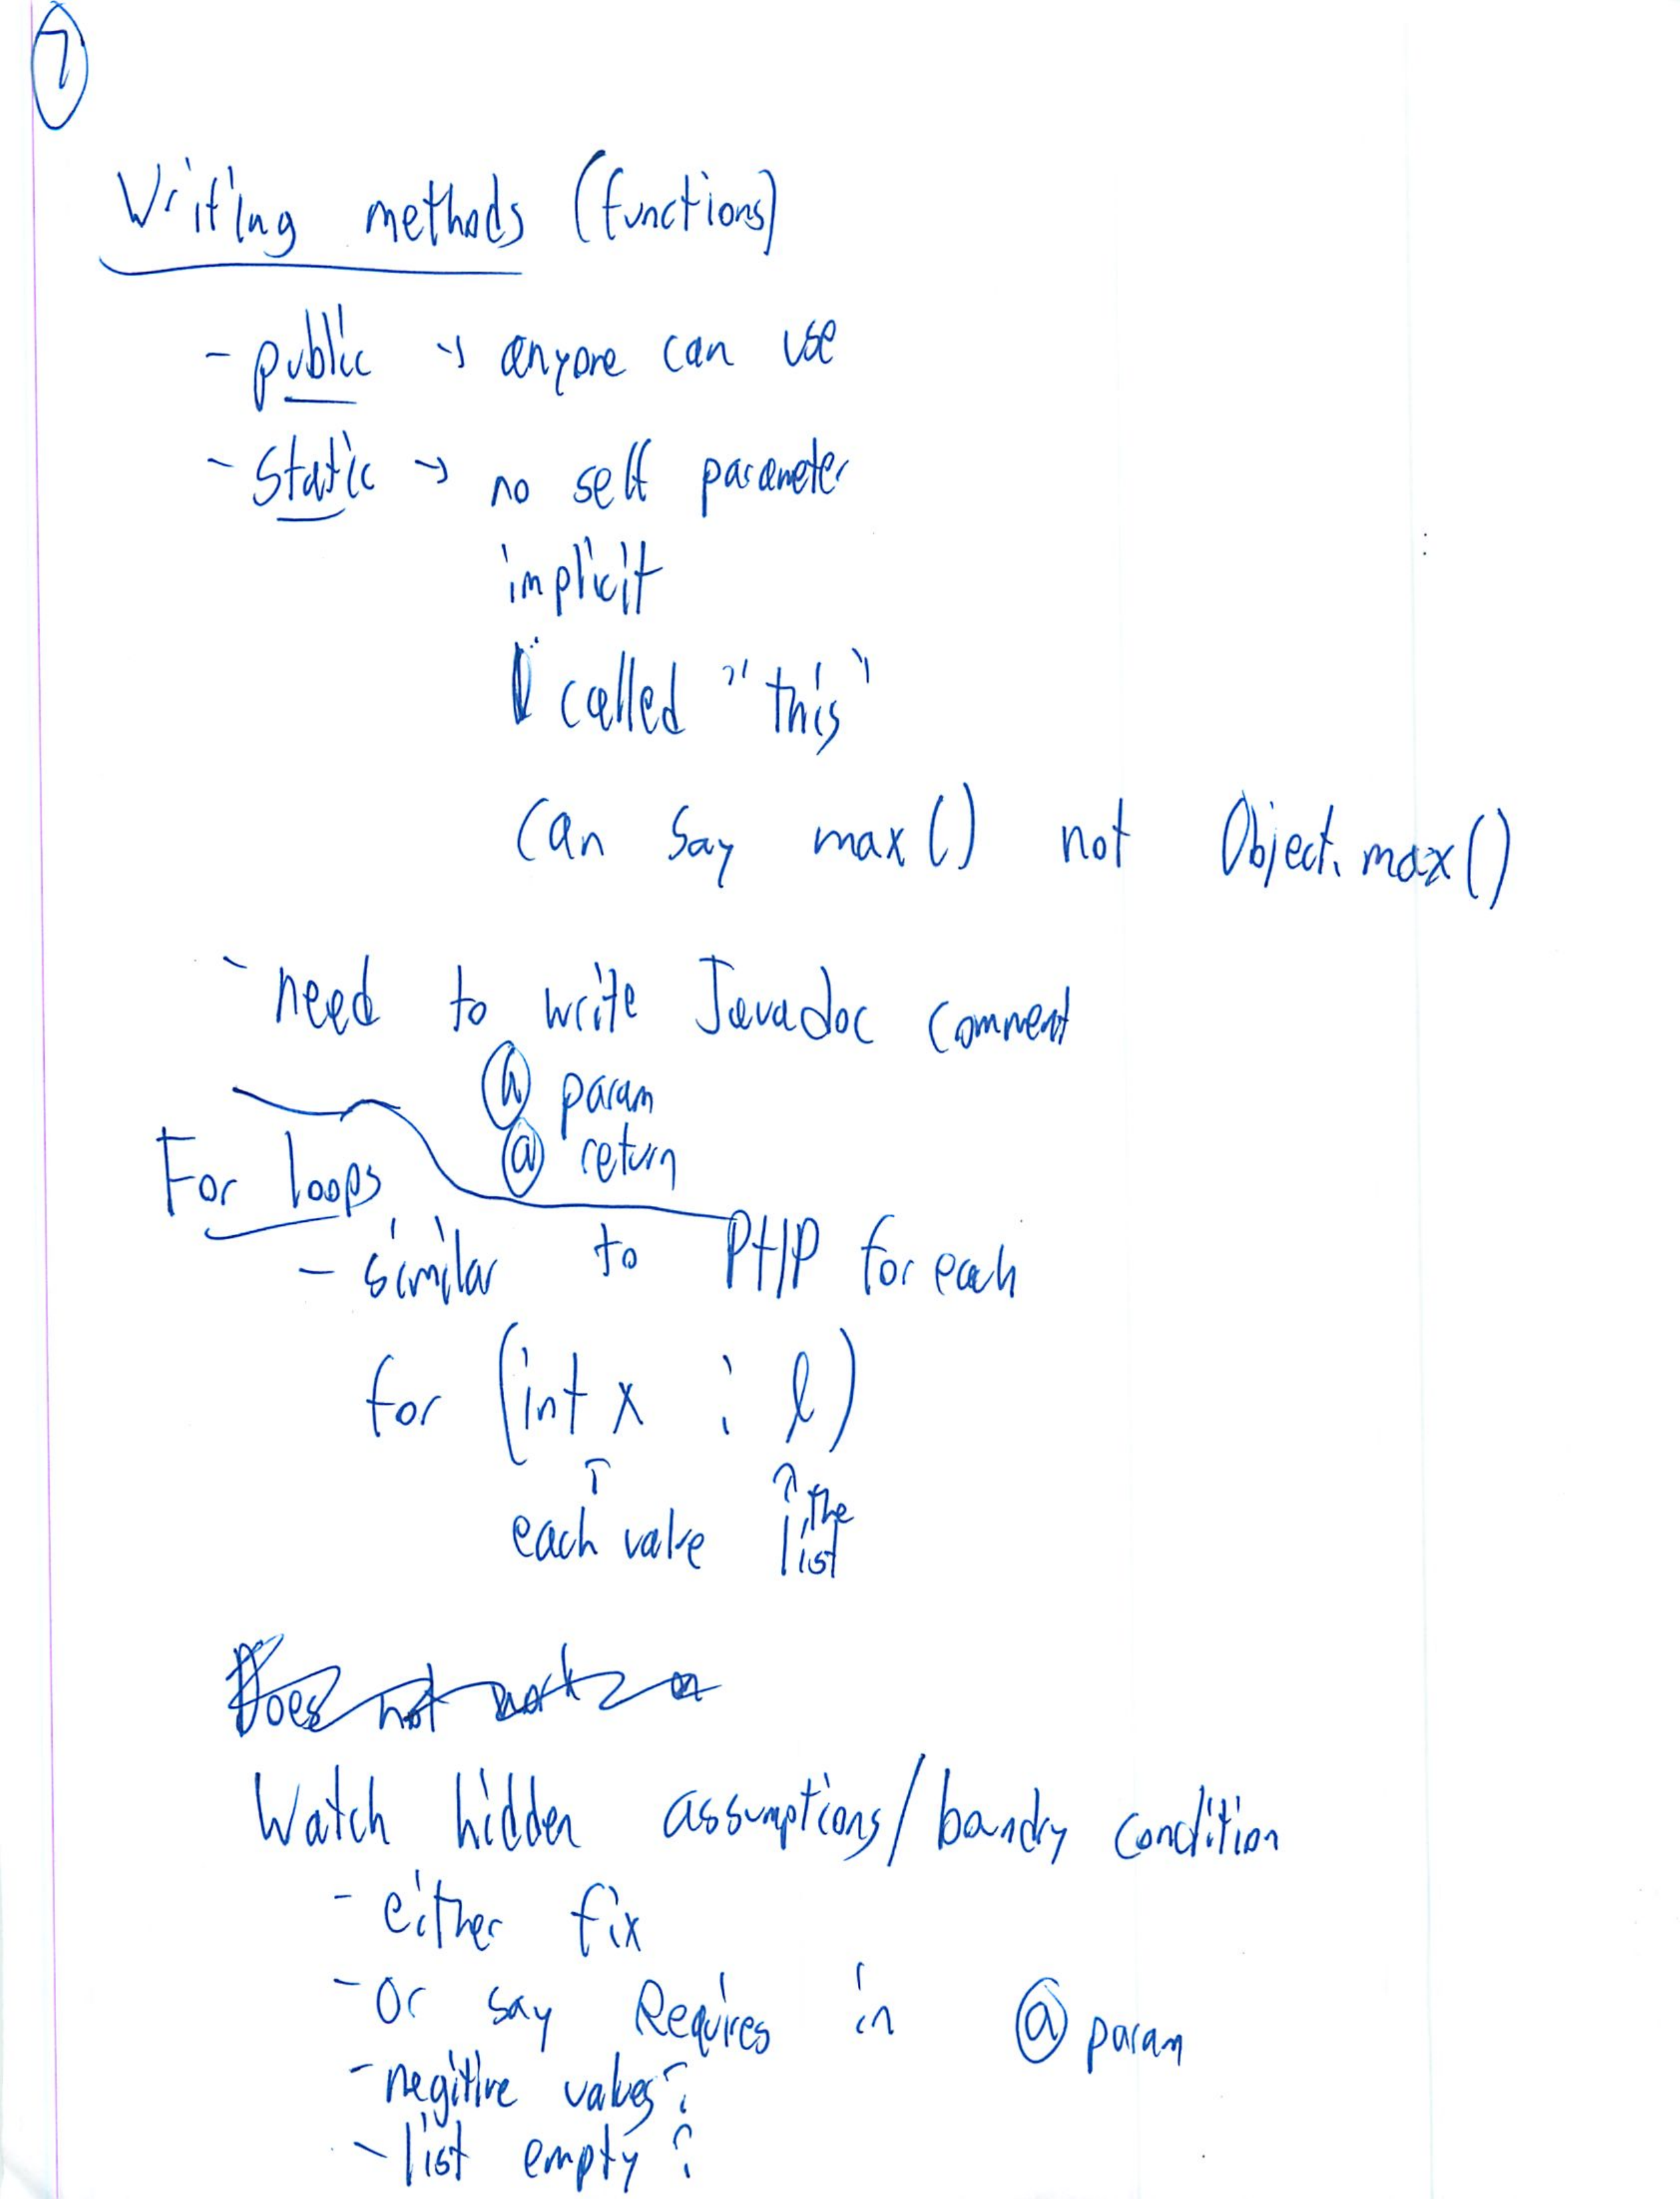 7
Writing methods (functions)
- public → anyone can use
- static → no self parameter
implicit
called "this"
Can say max() not Object.max()
- need to write Javadoc comment
@ param
@ return
For loops
- similar to PHP for each
for (int x : l)
↑ ↑
each value the list
Does not work on
Watch hidden assumptions/boundry condition
- either fix
- Or say Requires in @ param
- negitive values?
- list empty?